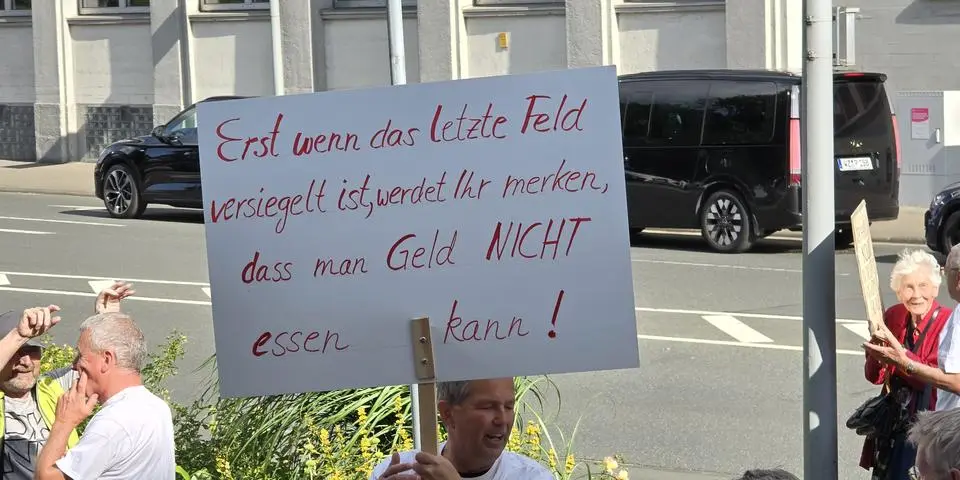 Erst wenn das letzte Feld
versiegelt ist, werdet Ihr merken,
dass man Geld NICHT
essen kann!